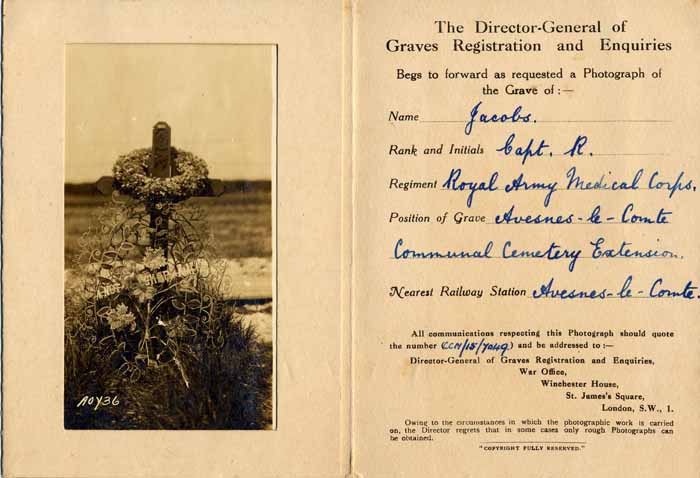 AOY36
The Director-General of
Graves Registration and Enquiries
Begs to forward as requested a Photograph of
the Grave of :—
Name Jacobs.
Rank and Initials Capt. R.
Regiment Royal Army Medical Corps.
Position of Grave Avesnes-le-Comte
Communal Cemetery Extension.
Nearest Railway Station Avesnes-le-Comte.
All communications respecting this Photograph should quote
the number (CCM/15/7049) and be addressed to :—
Director-General of Graves Registration and Enquiries,
War Office,
Winchester House,
St. James's Square,
London, S.W., 1.
Owing to the circumstances in which the photographic work is carried
on, the Director regrets that in some cases only rough Photographs can
be obtained.
"COPYRIGHT FULLY RESERVED."